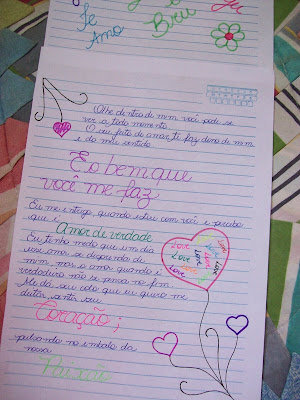 Te
Amo
Biu
Olhe dentro de mim você pode se
ver a todo momento
O seu jeito de amar te faz dona de mim
e do meu sentido
E o bem que
você me faz
Eu me entrego, quando estou com você e percebo
que é
Amor de verdade
Eu tenho medo que um dia
esse amor se desprenda de
mim, mas o amor quando é
verdadeiro não se pensa no fim
Me dá seu colo que eu quero me
deitar, sentir seu
Coração;
pulsando no embalo da
nossa
Paixão
Love
Love
Love
Love
Love